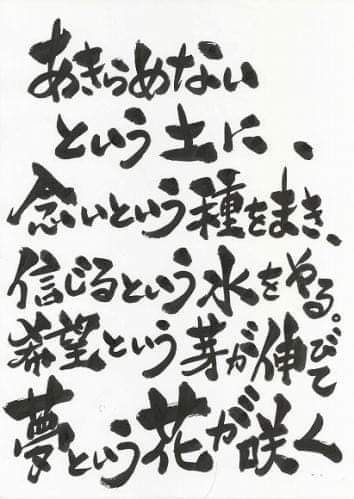 あきらめない
という土に、
念いという種をまき、
信じるという水をやる。
希望という芽が伸びて
夢という花が咲く